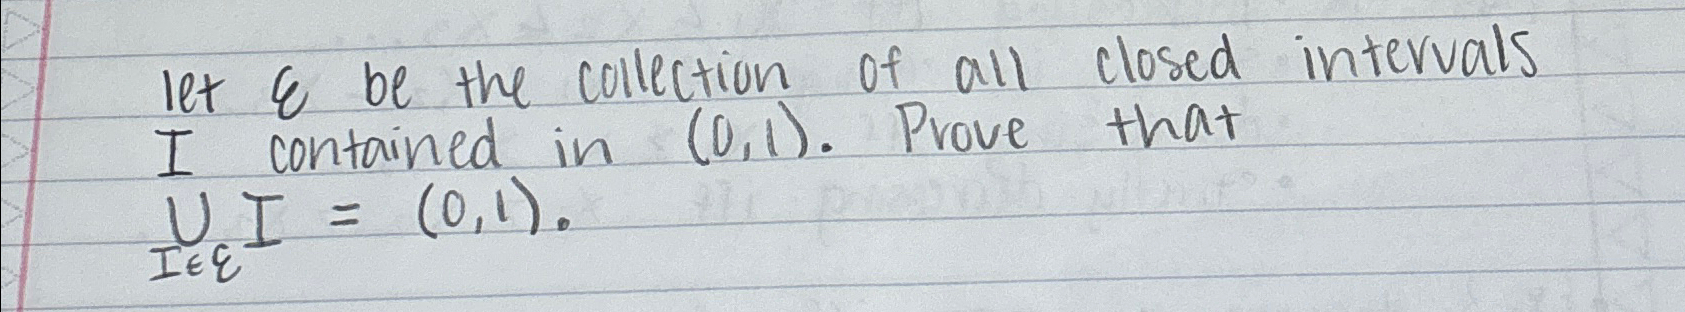 let ℰ be the collection of all closed intervals
I contained in (0,1). Prove that
⋃ I = (0,1).
I∈ℰ